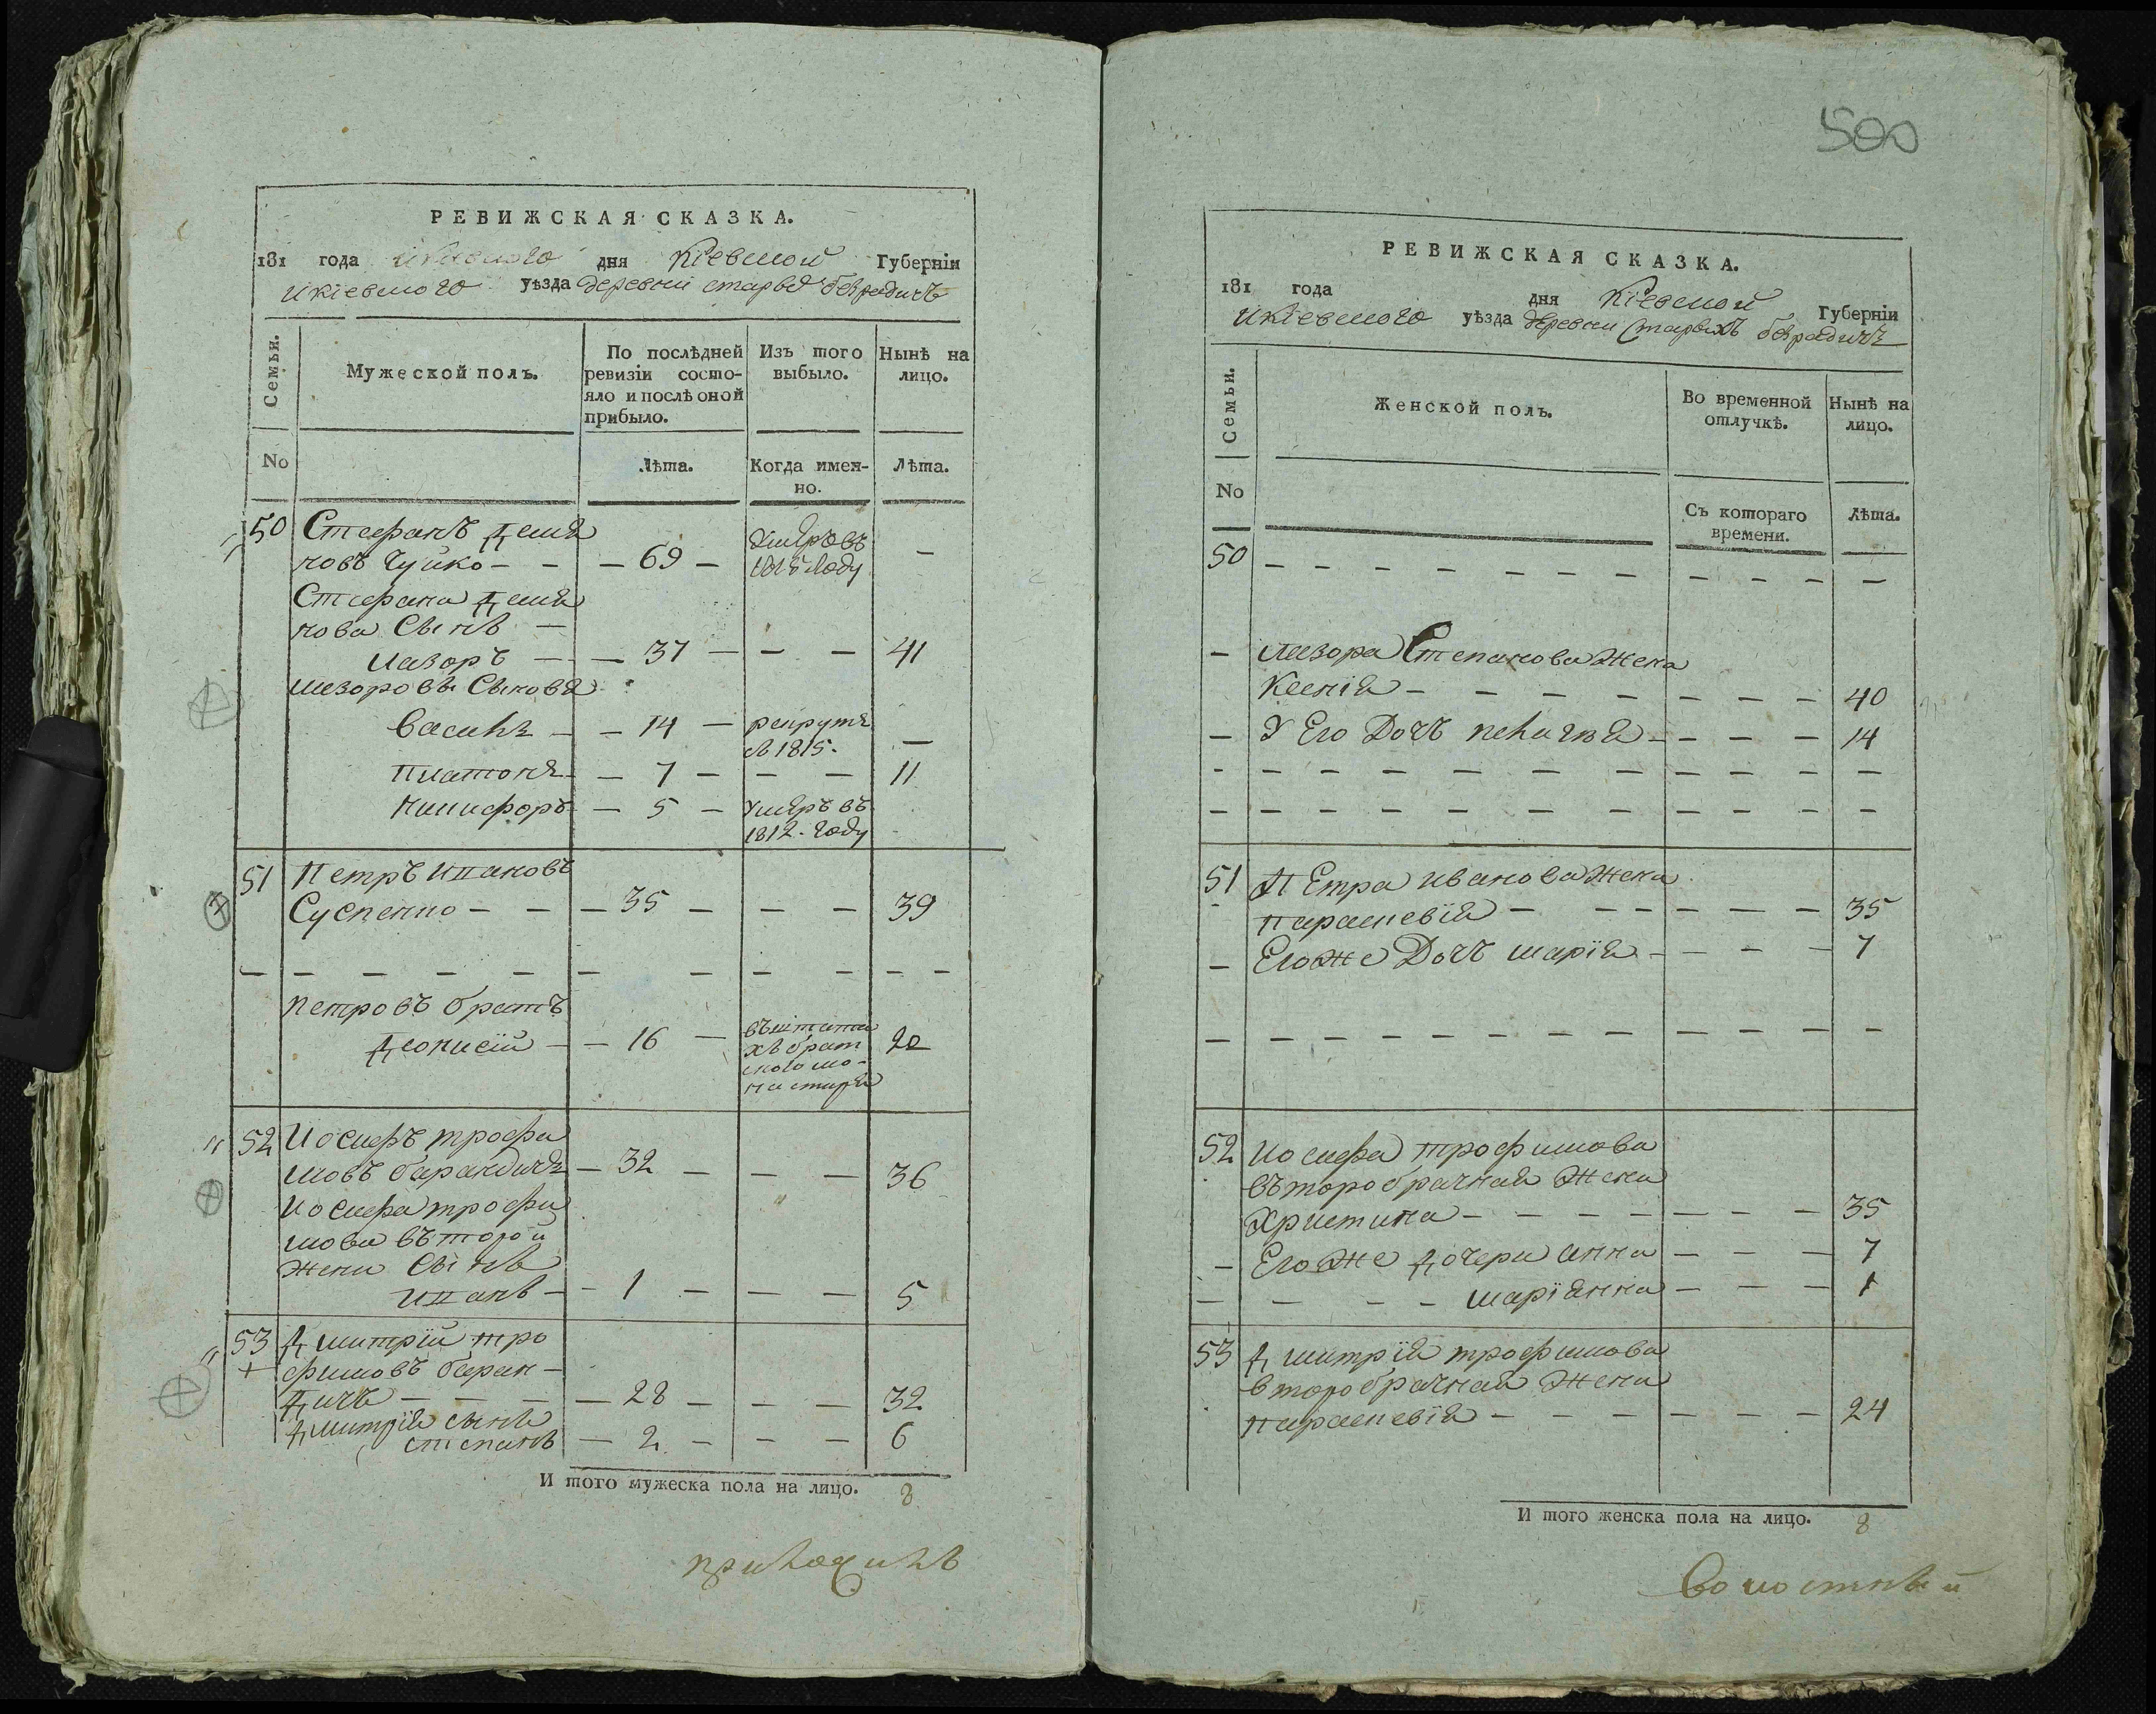 РЕВИЖСКАЯ СКАЗКА.
181 года дня Кіевской Губерніи
Икіевского уѣзда деревни старых безрадичъ
Семьи.
Мужеской полъ.
По послѣдней ревизіи состо-
яло и послѣ оной
прибыло.
Изъ того выбыло.
Нынѣ на лицо.
No
Лѣта.
Когда имен-
но.
Лѣта.
50 Стефанъ Демя
новъ Чуйко - - - 69 - умеръ въ 1815 году -
Стефана Демя
нова Сынъ -
Лазоръ - - 37 - - - 41
Лазоровы Сыновя
Василъ - - 14 - рекрутъ в 1815. -
Платонъ - - 7 - - - 11
Никифоръ - 5 - умеръ въ 1812. году
51 Петръ Ивановъ
Суспенко - - - 35 - - - 39
- - - - - - - - - - -
Петровъ братъ
Деонисій - - 16 - въ штатн
хъ брат
ского мо-
настиря 20
52 Иосифъ трофи
мовъ барандичъ - 32 - - - 36
Иосифа трофи
мова въторой
жени Сынъ
Иванъ - - 1 - - - 5
53 Дмитрій тро
фимовъ баран-
дичъ - - - - 28 - - - 32
Дмитрія сынъ
степанъ - 2 - - - 6
И того мужеска пола на лицо. 8
приказчикъ
500
РЕВИЖСКАЯ СКАЗКА.
181 года дня Кіевской Губерніи
Икіевского уѣзда деревни старыхъ безрадичъ
Семьи.
Женской полъ.
Во временной отлучкѣ.
Нынѣ на лицо.
No
Съ котораго
времени.
Лѣта.
50 - - - - - - - - - - - -
- Лазора Степанова жена
Ксенія - - - - - - - - 40
- У Его Дочъ - - - - 14
- - - - - - - - - - - -
- - - - - - - - - - - -
51 Петра иванова жена
параскевія - - - - - - 35
- Егоже Дочъ марія - - - - 7
- - - - - - - - - - - -
52 иосифа трофимова
въторобрачная жена
Христина - - - - - - - - 35
- Егоже дочери анна - - - 7
- - - - маріянна - - - 1
53 Дмитрія трофимова
второбрачная жена
параскевія - - - - - - - 24
И того женска пола на лицо. 8
волостный